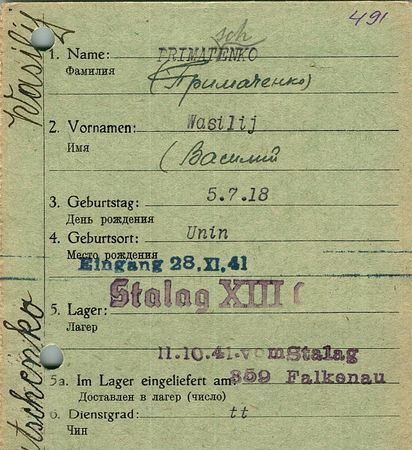 491
sch
1. Name: PRIMATENKO
Фамилия
(Примаченко)
2. Vornamen: Wasilij
Имя
(Василий
3. Geburtstag: 5.7.18
День рождения
4. Geburtsort: Unin
Место рождения
Eingang 28.XI.41
Stalag XIII C
5. Lager:
Лагер
11.10.41. vom Stalag
359 Falkenau
5a. Im Lager eingeliefert am:
Доставлен в лагер (число)
6. Dienstgrad: tt
Чин
Wasilij
tschenko